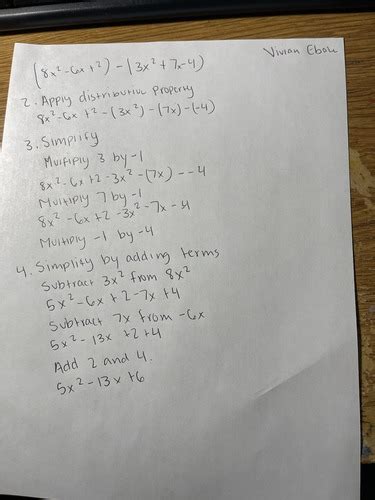 Vivian Ebale
(8x²-6x+2) - (3x²+7x-4)
2. Apply distributive property
8x²-6x+2-(3x²)-(7x)-(-4)
3. Simplify
Multiply 3 by -1
8x²-6x+2-3x²-(7x)--4
Multiply 7 by -1
8x²-6x+2-3x²-7x--4
Multiply -1 by -4
4. Simplify by adding terms
Subtract 3x² from 8x²
5x²-6x+2-7x+4
Subtract 7x from -6x
5x²-13x+2+4
Add 2 and 4.
5x²-13x+6